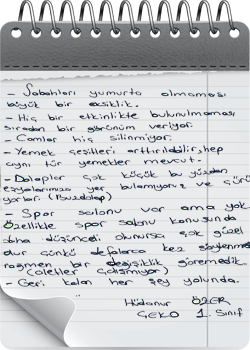 - Sabahları yumurta olmaması
büyük bir eksiklik.
- Hiç bir etkinlikte bulunulmaması
sıradan bir görünüm veriyor.
- Camlar hiç silinmiyor.
- Yemek çeşitleri arttırılabilir, hep
aynı tür yemekler mevcut.
- Dolaplar çok küçük bu yüzden
eşyalarımıza yer bulamıyoruz ve
(Buzdolap)
- Spor salonu var ama yok.
Özellikle spor salonu konusunda
daha düşünceli olunursa çok güzel
olur çünkü defalarca kez söylenme
rağmen bir değişiklik göremedik.
(aletler çalışmıyor)
- Geri kalan her şey yolunda.
Hüdanur ÖZER
ÇEKO 1. Sınıf